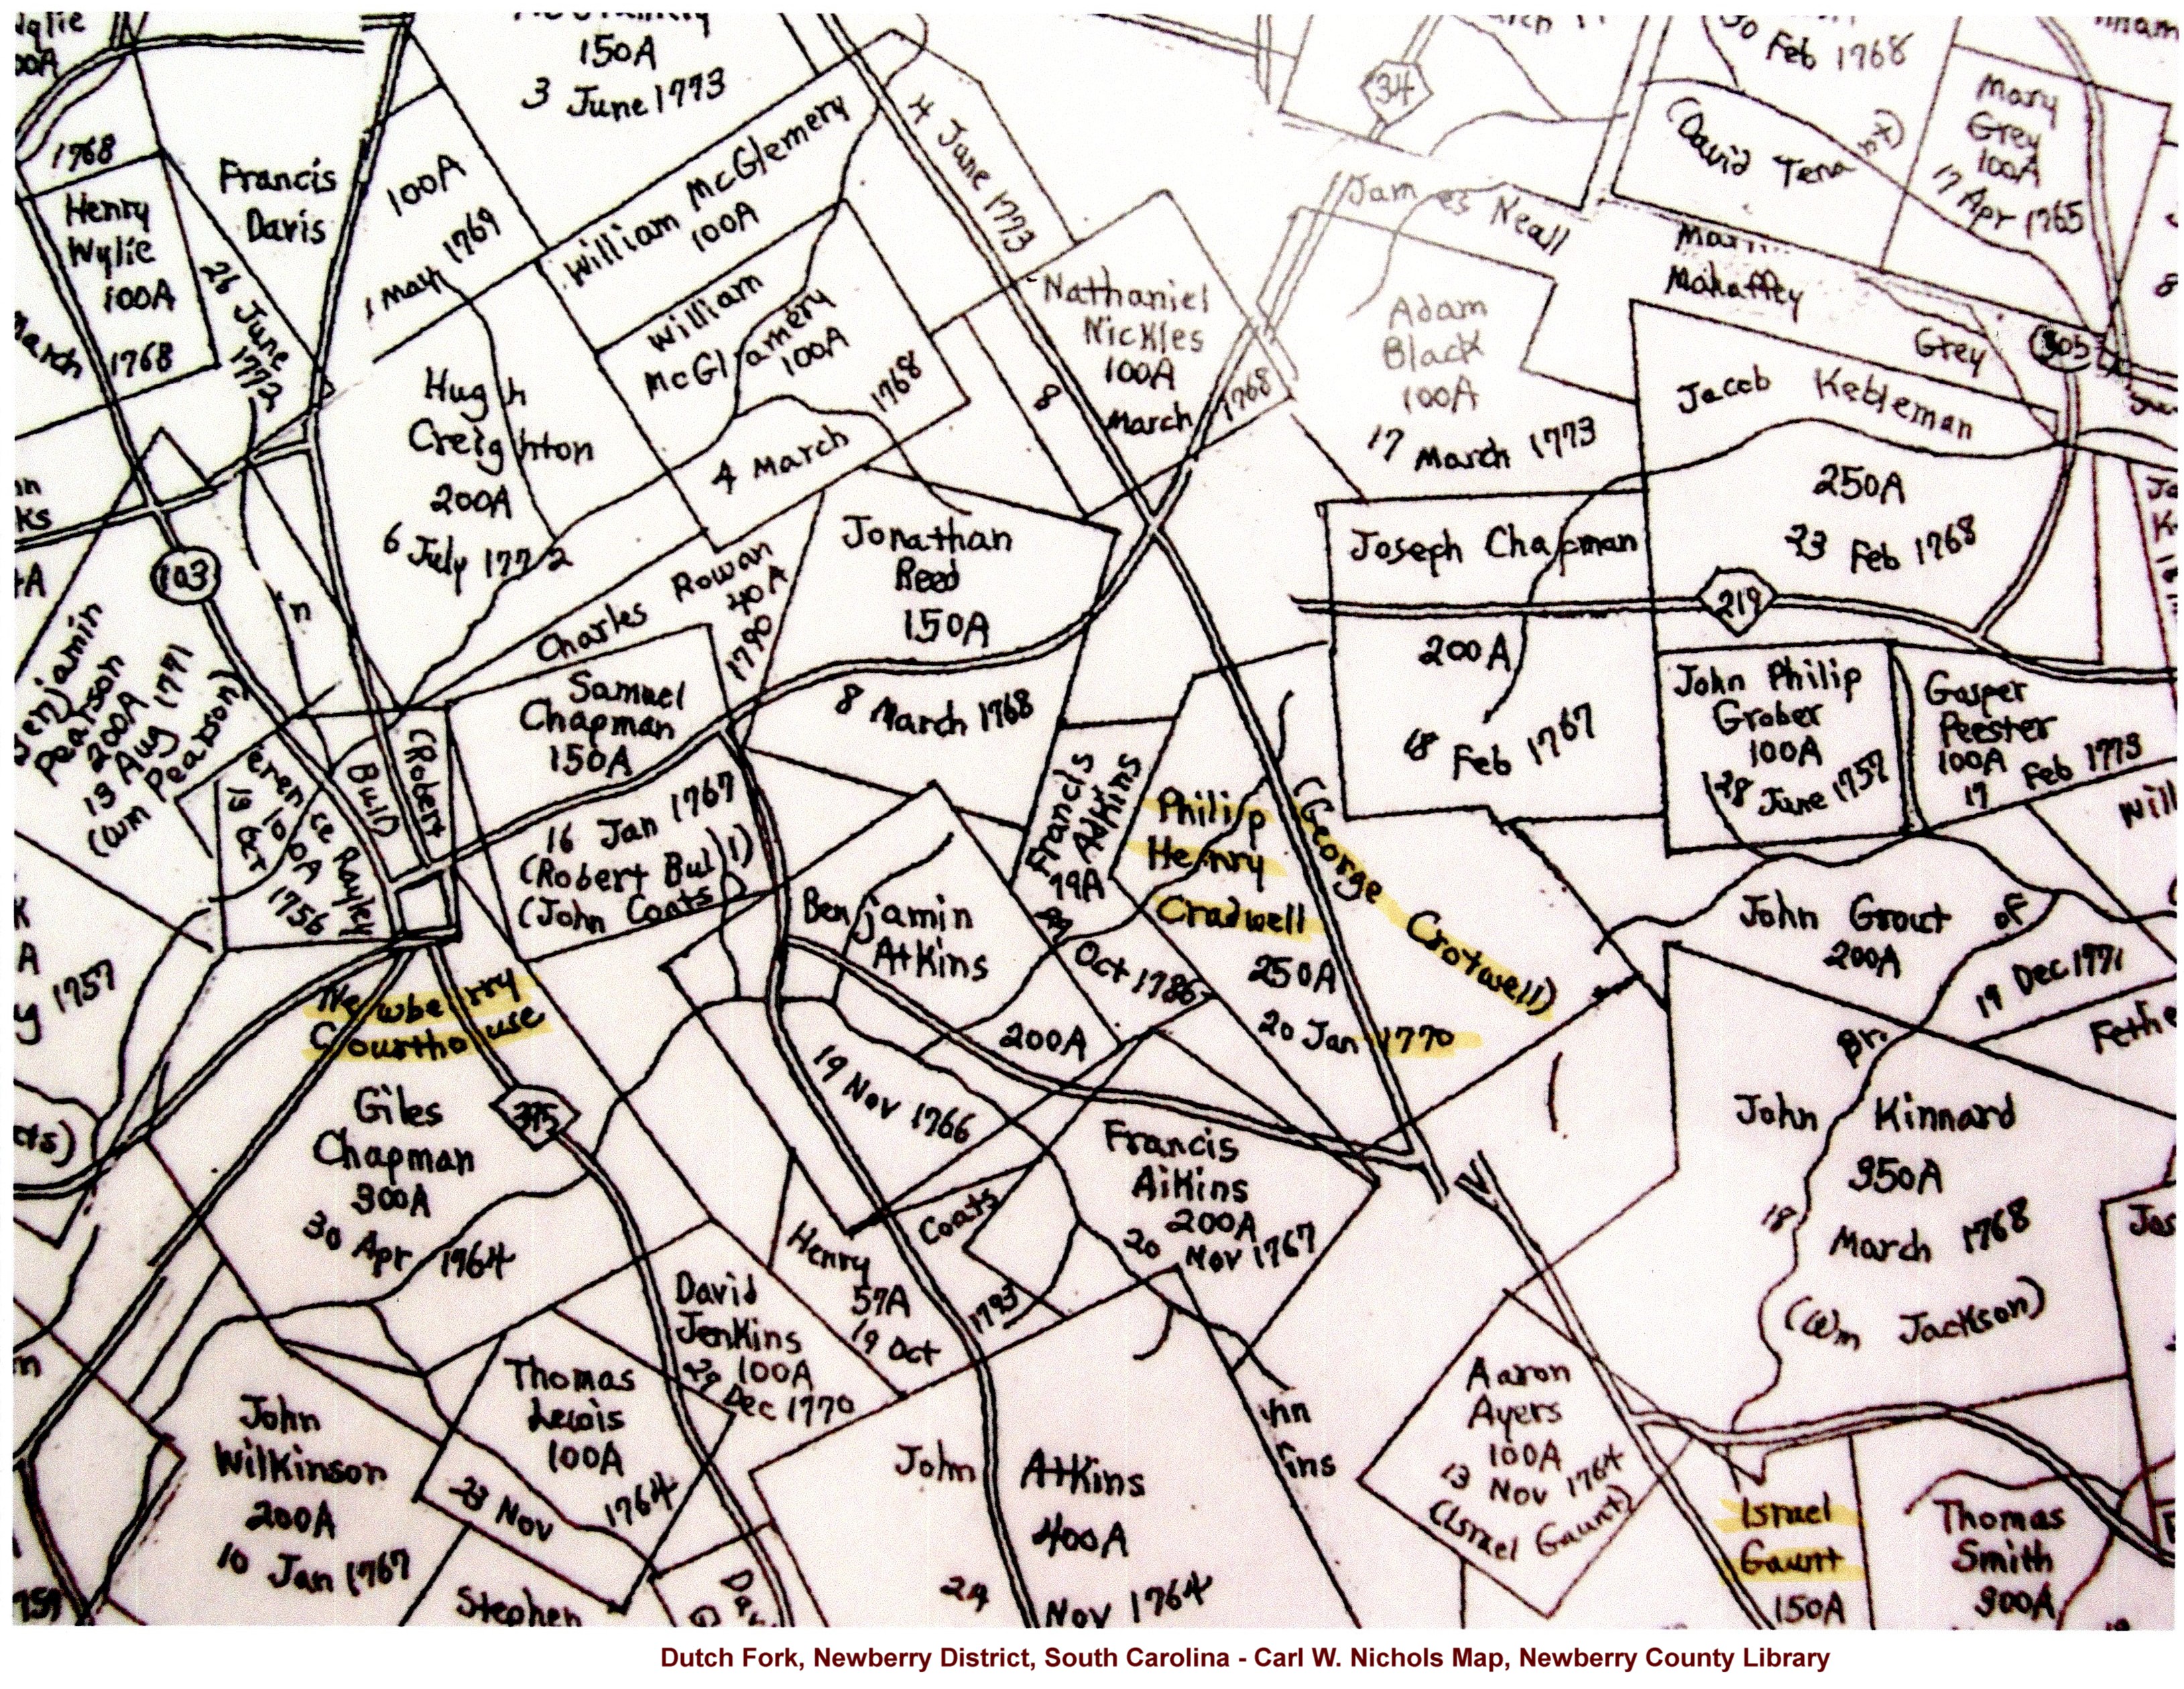 150A
3 June 1773
1768
Henry
Wylie
100A
1768
March
Francis
Davis
26 June
1772
100A
1 May 1769
William McGlemery
100A
4 June 1773
William
McGlamery
100A
4 March 1768
34
James Neall
Feb 1768
(David Tenant)
Mary
Grey
100A
17 Apr 1765
Mahaffey
Grey
305
Nathaniel
Nickles
100A
8 March 1768
Adam
Black
100A
17 March 1773
Jacob Kebleman
250A
23 Feb 1768
Hugh
Creighton
200A
6 July 1772
103
Charles Rowan
40A
1790
Jonathan
Reed
150A
8 March 1768
Joseph Chapman
200A
18 Feb 1767
219
John Philip
Grober
100A
28 June 1757
Gasper
Peester
100A
17 Feb 1773
Benjamin
Pearson
200A
13 Aug 1771
(Wm Pearson)
Samuel
Chapman
150A
16 Jan 1767
(Robert Bull)
(John Coats)
(Robert
Bull)
Rayley
100A
19 Oct 1756
Francis
Adkins
79A
Oct 1786
Philip
Henry
Cradwell
250A
20 Jan 1770
(George Crotwell)
Benjamin
Atkins
200A
19 Nov 1766
John Grout
200A
19 Dec 1771
of
Br.
1757
Newberry
Courthouse
395
Giles
Chapman
300A
30 Apr 1764
Francis
Aikins
200A
20 Nov 1767
Henry Coats
57A
19 Oct 1793
John Kinnard
350A
18 March 1768
(Wm Jackson)
David
Jenkins
100A
Dec 1770
Thomas
Lewis
100A
23 Nov 1764
John
Wilkinson
200A
10 Jan 1767
Stephen
John Atkins
400A
24 Nov 1764
Aaron
Ayers
100A
13 Nov 1764
(Israel Gaunt)
Israel
Gaunt
150A
Thomas
Smith
300A
Dutch Fork, Newberry District, South Carolina - Carl W. Nichols Map, Newberry County Library